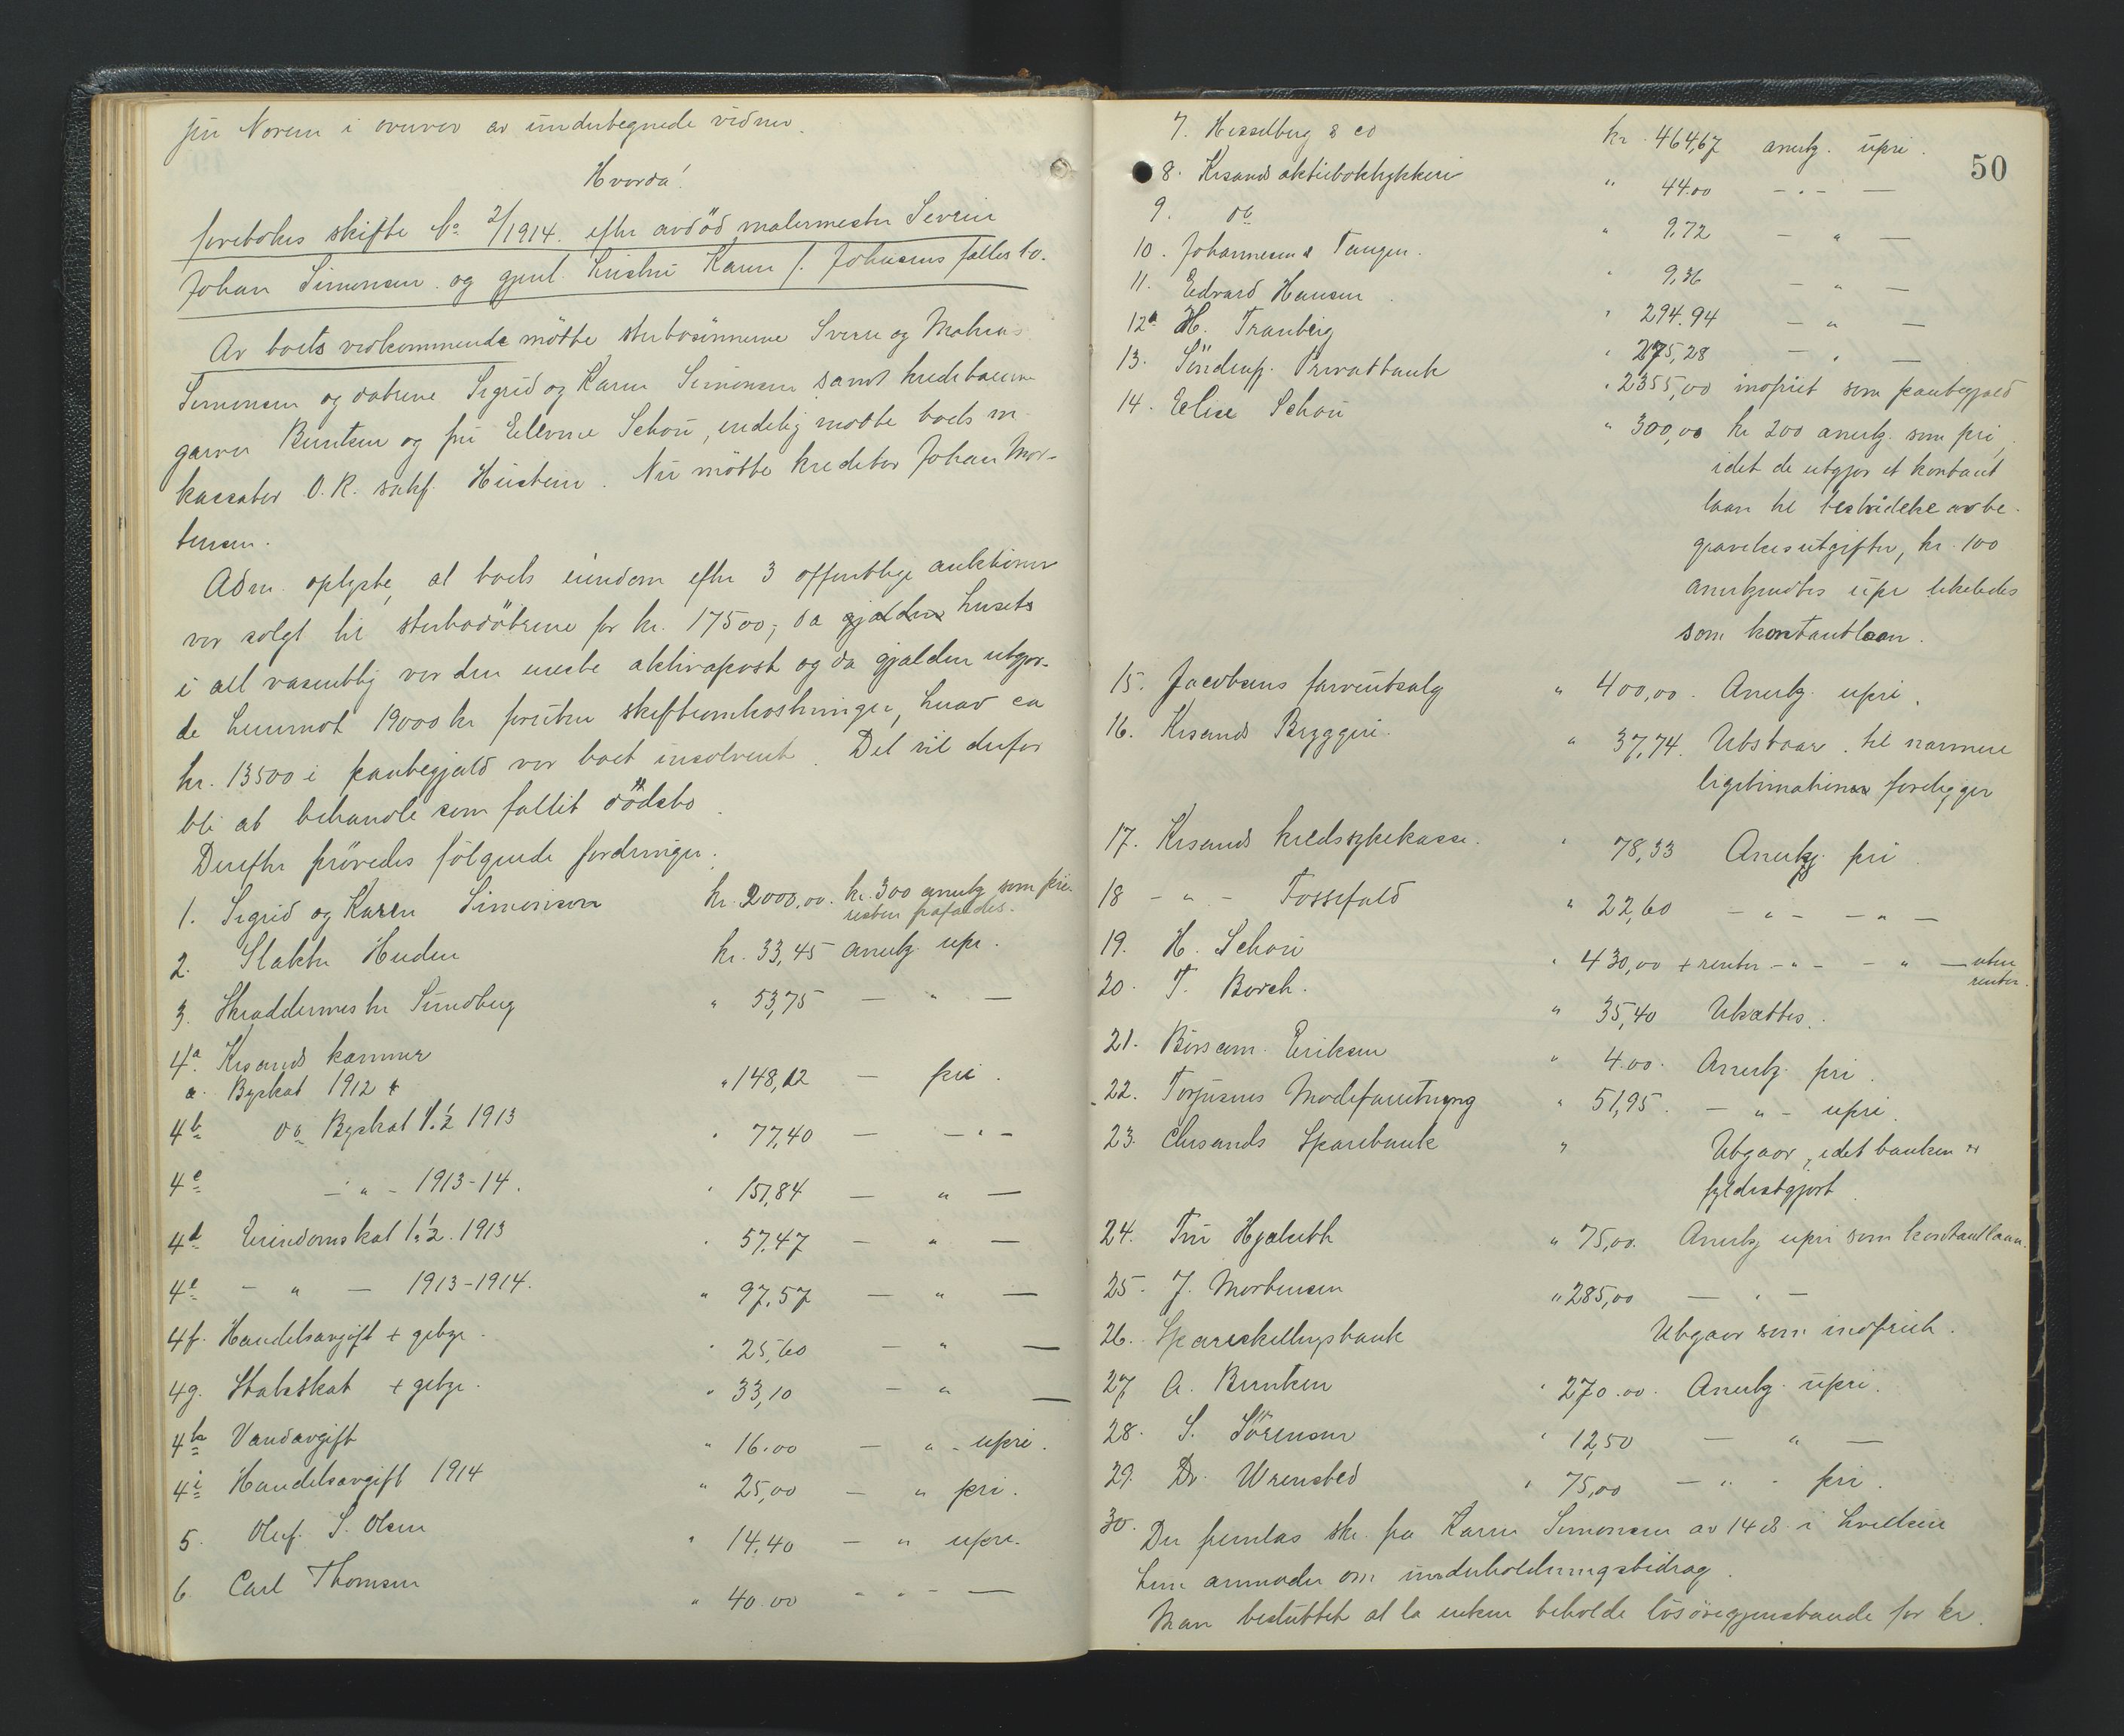 fru Norem i overvær av undertegnede vidner.
Hvorda!
foretokes skifte No 2/1914. efter avdöd malermester Severin
Johan Simonsen og gjenl. hustru Karen f. Johnsens fælles bo.
Av boets vedkommende mötte sterbosönnerne Sverre og Mathias
Simonsen og dötrene Sigrid og Karen Simonsen samt kreditorerne
garver Buntzen og fru Schou, endelig mötte boets in-
kassator O.R. sakf. Heistein. Nu mötte kreditor Johan Mor-
tensen.
Adm. oplyste, at boets eiendom efter 3 offentlige auktioner
var solgt til sterbodötrene for kr. 17500,- da gjælden husets
i alt væsentlig var den eneste aktivapost og da gjælden utgjor-
de henimot 19000 kr foruten skifteomkostninger, hvorav ca
kr. 13500 i pantegjæld var boet insolvent. Det vil derfor
bli at behandle som fallit dödsbo.
Derefter prövedes fölgende fordringer.
1. Sigrid og Karen Simonsen kr. 2000,00. kr. 300 anerkj. som pri.
resten frafaldes.
2. Slakter Huden kr. 33,45 anerkj. upr.
3. Skræddermester Sundberg " 53,75 — " —
4a. Krsands kæmner
a. Byskat 1912 " 148,12 — pri.
4b do Byskat 1. 1/2 1913 " 77,40 — - " -
4c - " - 1913-14. " 151,84 — " —
4d Eiendomskat 1. 1/2. 1913 " 57,47 — " —
4e - " — 1913-1914. " 97,57 — " —
4f. Handelsavgift + gebyr. " 25,60 — " —
4g. Statsskat + gebyr. " 33,10 — " —
4h Vandavgift " 16.00 — " - upri.
4i Handelsavgift 1914 " 25,00 — " pri.
5. Oluf S. Olsen " 14.40 — " upri.
6 Carl Thomsen " 40.00 - " - —
50
7. Hesselberg & co kr. 464,67 anerkj. upri.
8. Krsands aktiebogtrykkeri " 44.00 - " - —
9. do " 9,72 — " —
10. Johannesen & Tangen. " 9,36 — " —
11. Edvard Hansen. " 294.94 — " —
12a H. Tranberg " 275,28 — " —
13. Söndenf. Privatbank " 2355,00 indfriet som pantegjæld
14. Elise Schou " 300,00 kr 200 anerkj. som pri,
idet de utgjör et kontant
laan til bestridelse av be-
gravelsesutgifter, kr. 100
anerkjendtes upr. likeledes
som kontantlaan.
15. Jacobsens farveutsalg " 400,00. Anerkj. upri.
16. Krsands Bryggeri. " 37,74. Utstaar til nærmere
legitimationer foreligger
17. Krsands kredssykekasse. " 78,33 Anerkj. pri
18 - " - Fossefald " 22,60 - " - - " —
19. H. Schou " 430,00 + renter - " - - " — uten
renter.
20. T. Borch. " 35,40 Utsættes.
21. Börsem. Eriksen " 4.00. Anerkj. pri.
22. Torjusens Modeforretning " 51,95. — " - upri.
23. Chrsands Sparebank " Utgaar, idet banken er
fyldestgjort.
24. Fru Hjaluth " 75,00. Anerkj upri som kontantlaan.
25. J. Mortensen " 285,00 — " —
26. Spareskillingsbank Utgaar som indfriet.
27 A. Buntzen " 270.00. Anerkj. upri.
28. S. Sörensen " 12,50 — " —
29. Dr. Wrensted " 75,00 — " - pri.
30. Der fremlas skr. fra Karen Simonsen av 14 ds. i hvilken
hun anmoder om underholdningsbidrag.
Man besluttet at la enken beholde lösöregjenstande for kr.